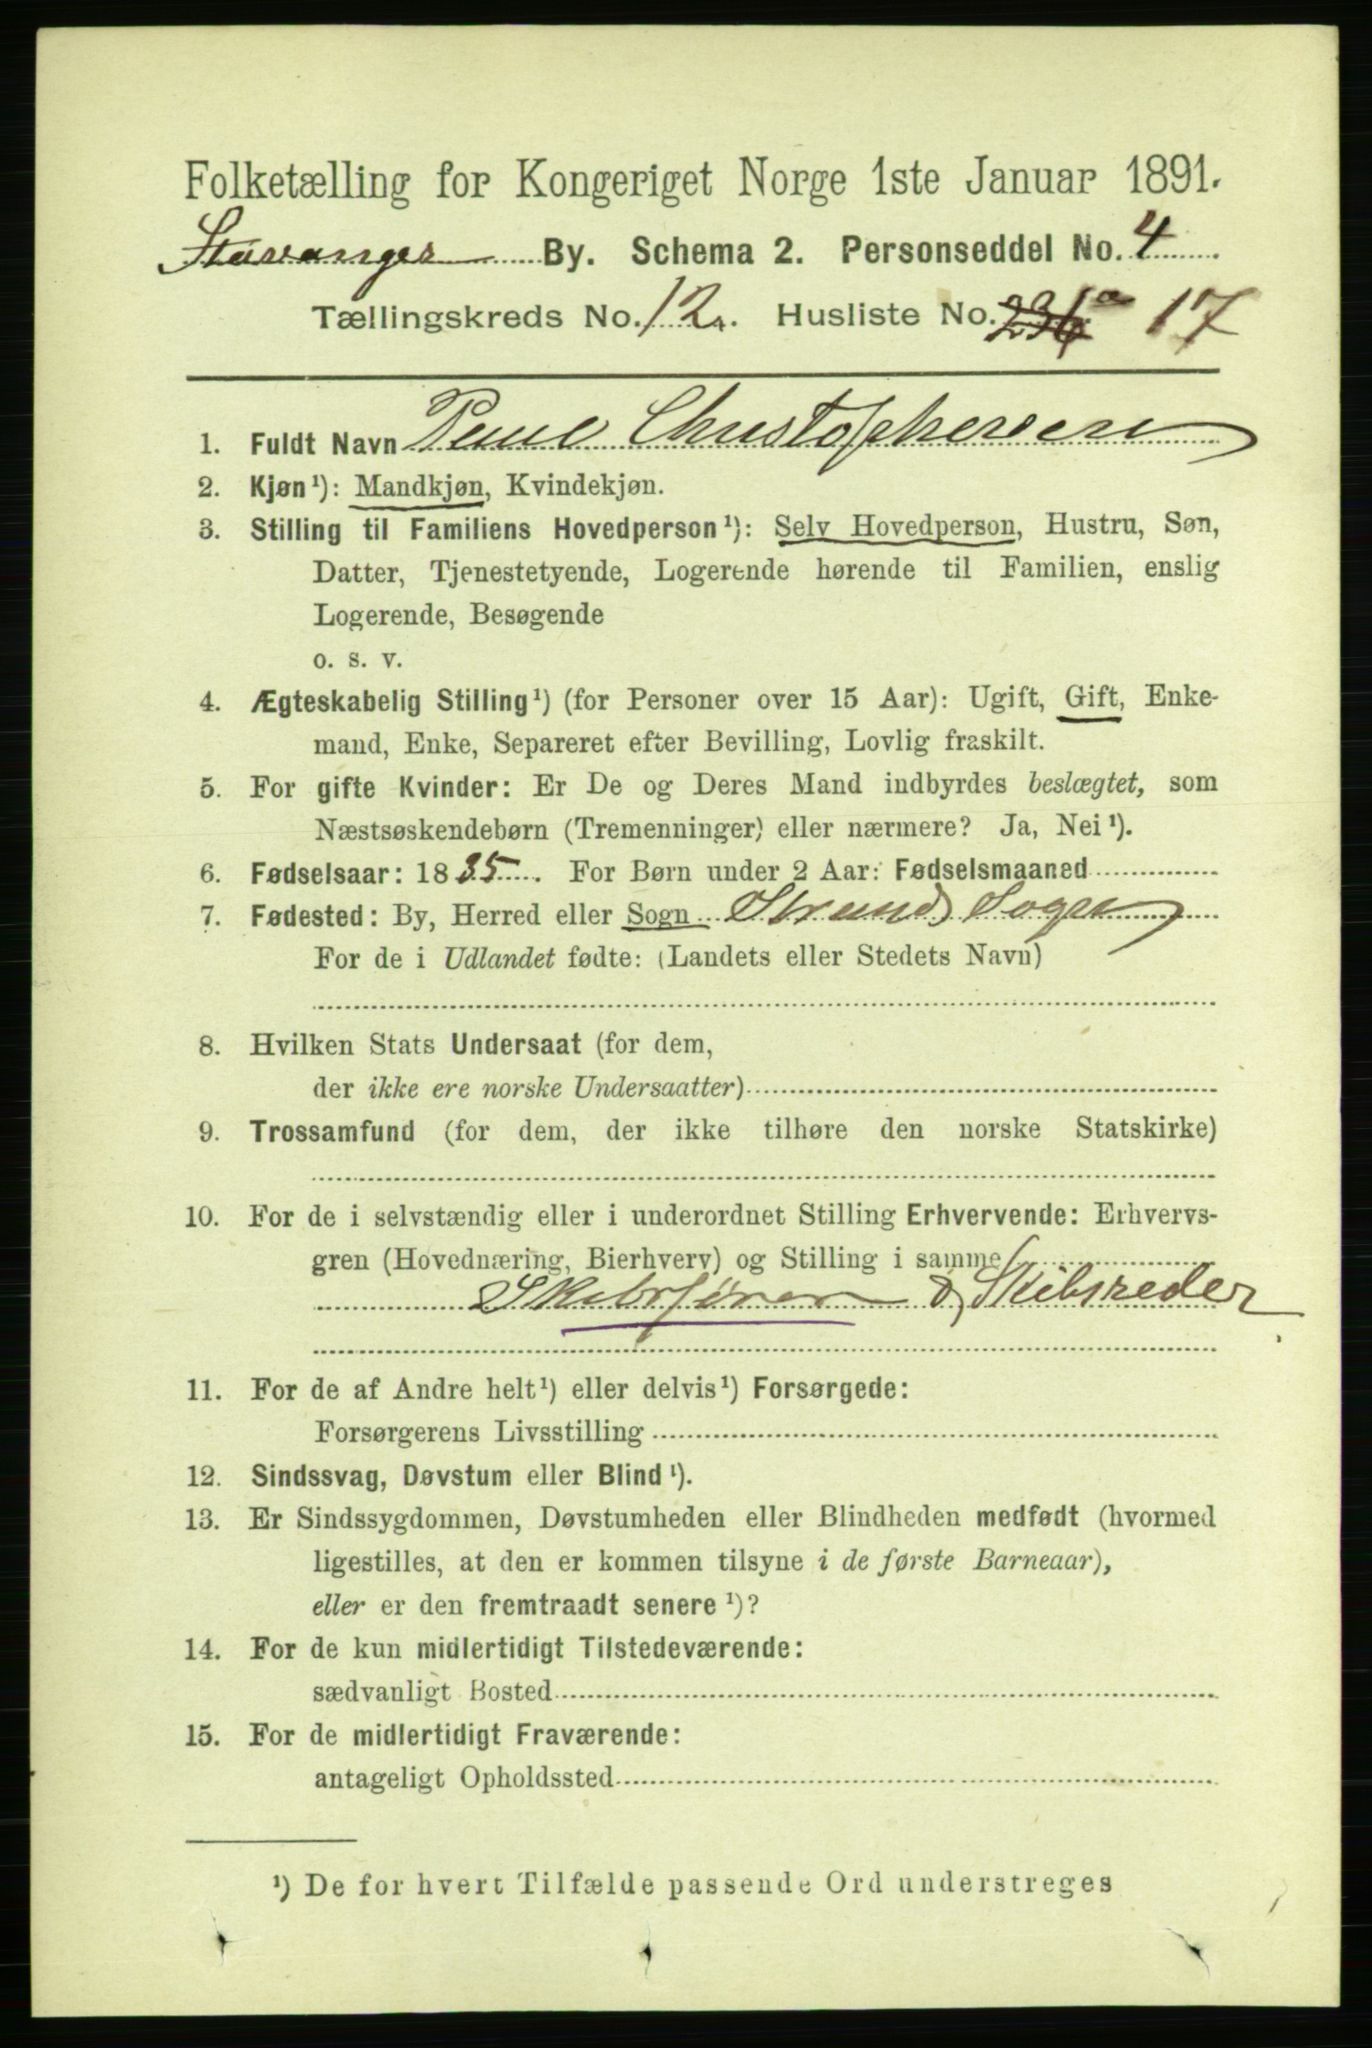 Folketælling for Kongeriget Norge 1ste Januar 1891.
Stavanger By. Schema 2. Personseddel No. 4
Tællingskreds No. 12. Husliste No. 231a 17
1. Fuldt Navn Peder Christophersen
2. Kjøn¹): Mandkjøn, Kvindekjøn.
3. Stilling til Familiens Hovedperson¹): Selv Hovedperson, Hustru, Søn,
Datter, Tjenestetyende, Logerende hørende til Familien, enslig
Logerende, Besøgende
o. s. v.
4. Ægteskabelig Stilling¹) (for Personer over 15 Aar): Ugift, Gift, Enke-
mand, Enke, Separeret efter Bevilling, Lovlig fraskilt.
5. For gifte Kvinder: Er De og Deres Mand indbyrdes beslægtet, som
Næstsøskendebørn (Tremenninger) eller nærmere? Ja, Nei¹).
6. Fødselsaar: 1835. For Børn under 2 Aar: Fødselsmaaned
7. Fødested: By, Herred eller Sogn Strand Sogn
For de i Udlandet fødte: (Landets eller Stedets Navn)
8. Hvilken Stats Undersaat (for dem,
der ikke ere norske Undersaatter)
9. Trossamfund (for dem, der ikke tilhøre den norske Statskirke)
10. For de i selvstændig eller i underordnet Stilling Erhvervende: Erhvervs-
gren (Hovednæring, Bierhverv) og Stilling i samme
Skibsfører & Skibsreder
11. For de af Andre helt¹) eller delvis¹) Forsørgede:
Forsørgerens Livsstilling
12. Sindssvag, Døvstum eller Blind¹).
13. Er Sindssygdommen, Døvstumheden eller Blindheden medfødt (hvormed
ligestilles, at den er kommen tilsyne i de første Barneaar),
eller er den fremtraadt senere¹)?
14. For de kun midlertidigt Tilstedeværende:
sædvanligt Bosted
15. For de midlertidigt Fraværende:
antageligt Opholdssted
¹) De for hvert Tilfælde passende Ord understreges